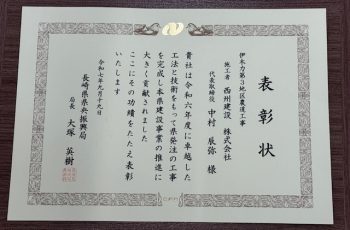 表彰状
伊木力第３地区農道工事
施工者 西州建設 株式会社
代表取締役 中村 辰弥 様
貴社は令和六年度に卓越した
工法と技術をもって県発注の工事
を完成し本県建設事業の推進に
大きく貢献されました
ここにその功績をたたえ表彰
いたします
令和七年九月十九日
長崎県県央振興局
局長 大塚 英樹